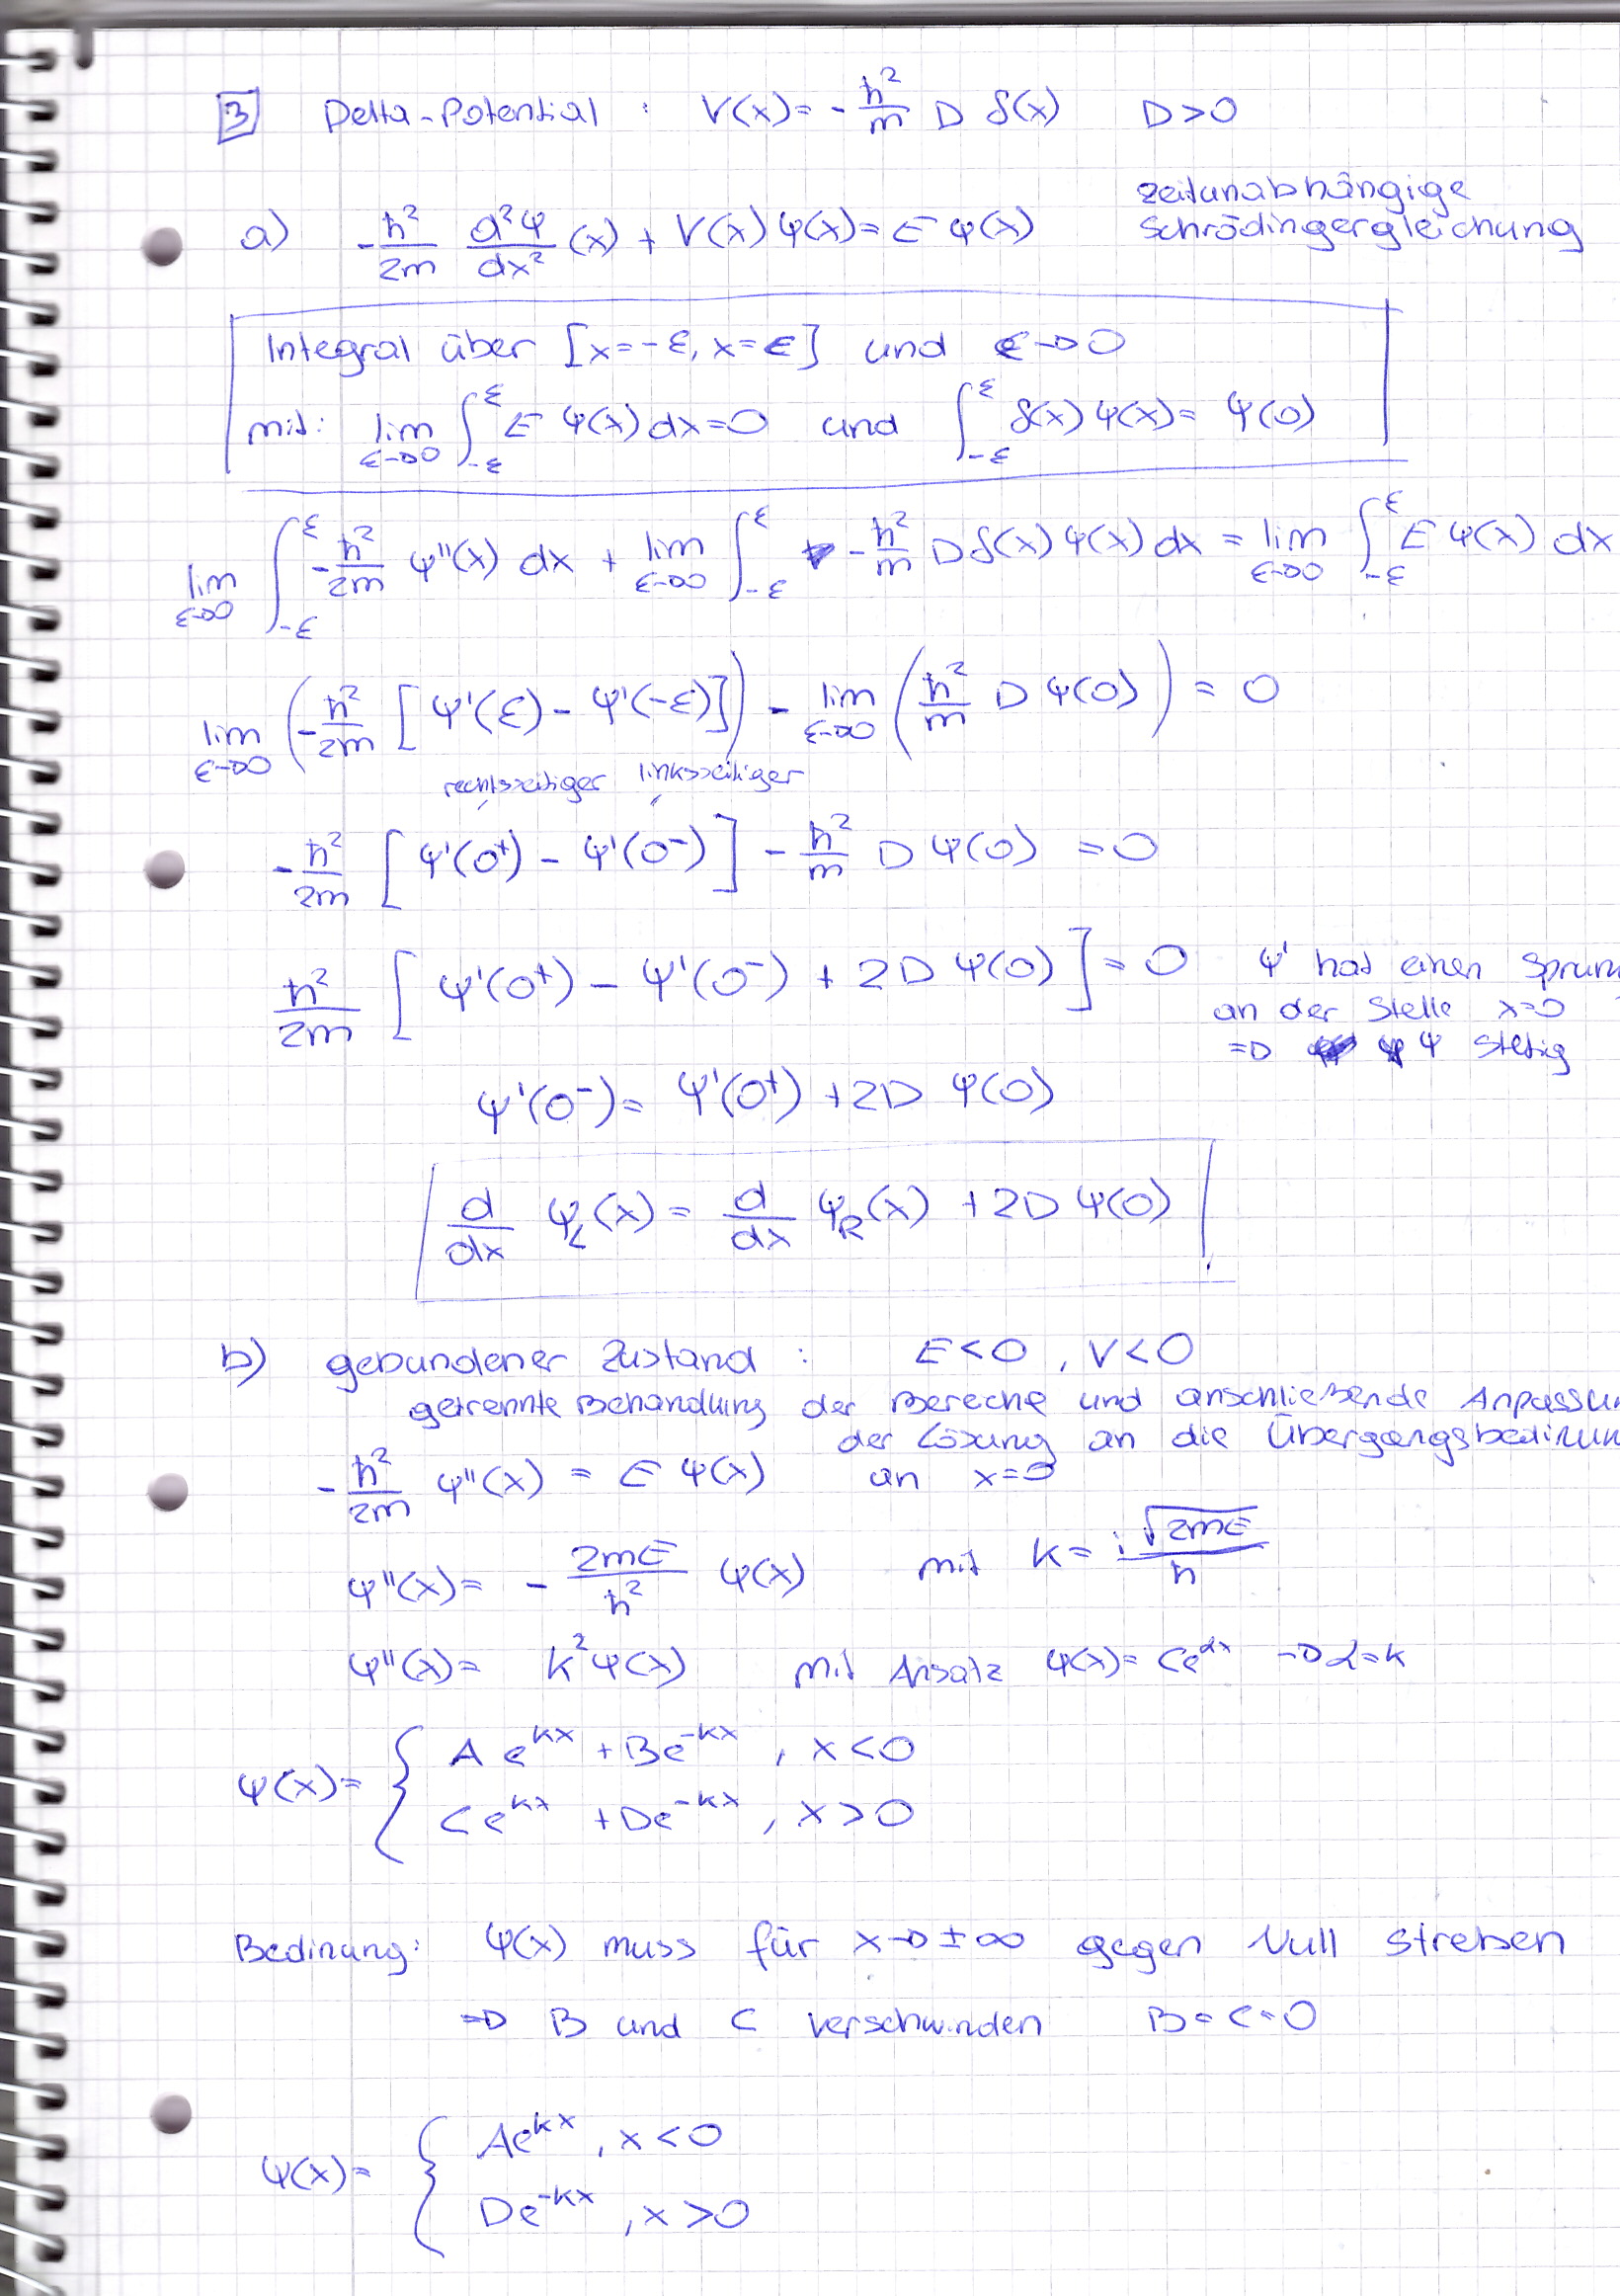 3 Delta-Potential : V(x) = - ħ²/m D δ(x) D > 0
zeitunabhängige
a) - ħ²/2m d²ψ/dx² (x) + V(x) ψ(x) = E ψ(x) Schrödingergleichung
Integral über [x=-ε, x=ε] und ε→0
mit: lim ε→0 ∫_-ε^ε E ψ(x) dx = 0 und ∫_-ε^ε δ(x) ψ(x) = ψ(0)
lim ε→0 ∫_-ε^ε - ħ²/2m ψ''(x) dx + lim ε→0 ∫_-ε^ε - ħ²/m D δ(x) ψ(x) dx = lim ε→0 ∫_-ε^ε E ψ(x) dx
lim ε→0 (- ħ²/2m [ψ'(ε) - ψ'(-ε)]) - lim ε→0 (ħ²/m D ψ(0)) = 0
rechtsseitiger linksseitiger
- ħ²/2m [ψ'(0⁺) - ψ'(0⁻)] - ħ²/m D ψ(0) = 0
ħ²/2m [ψ'(0⁺) - ψ'(0⁻) + 2D ψ(0)] = 0 ψ' hat einen Sprun
an der Stelle x=0
⇒ ψ stetig
ψ'(0⁻) = ψ'(0⁺) + 2D ψ(0)
d/dx ψ_L(x) = d/dx ψ_R(x) + 2D ψ(0)
b) gebundener Zustand : E < 0 , V < 0
getrennte Behandlung der Bereiche und anschließende Anpassun
der Lösung an die Übergangsbedinun
- ħ²/2m ψ''(x) = E ψ(x) an x=0
ψ''(x) = - 2mE/ħ² ψ(x) mit k = i√2mE/ħ
ψ''(x) = k² ψ(x) mit Ansatz ψ(x) = Ce^αx → α=k
ψ(x) = { A e^kx + Be^-kx , x < 0
Ce^kx + De^-kx , x > 0
Bedinung: ψ(x) muss für x → ±∞ gegen Null streben
⇒ B und C verschwinden B = C = 0
ψ(x) = { Ae^kx , x < 0
De^-kx , x > 0